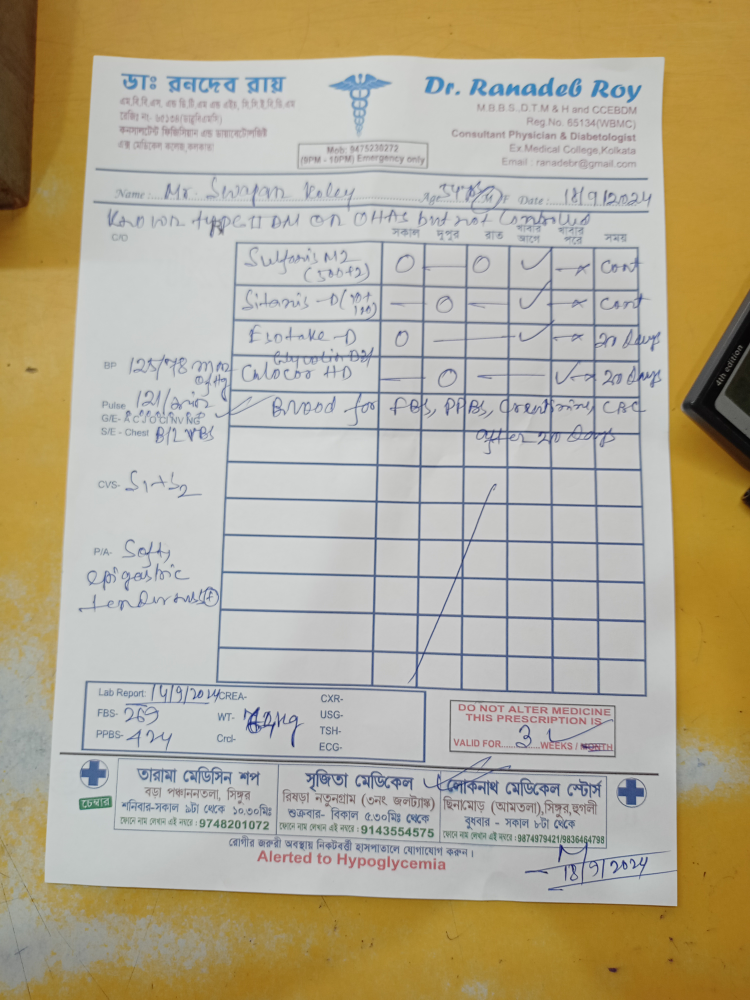 ডাঃ রনদেব রায়
কনসালটেন্ট ফিজিসিয়ান এন্ড ডায়াবেটোলজিষ্ট
এক্স মেডিকেল কলেজ, কলকাতা
Mob: 9475230272
(9PM - 10PM) Emergency only
Dr. Ranadeb Roy
M.B.B.S.,D.T.M & H and CCEBDM
Reg.No. 65134(WBMC)
Consultant Physician & Diabetologist
Ex.Medical College,Kolkata
Email : ranadebr@gmail.com
Name : Mr. Swapan Koley Age M/F Date : 18/9/2024
Known type II DM on OHAs but not controlled
C/O
সকাল দুপুর রাত খাবার আগে খাবার পরে সময়
M2 (500+2) O — O ✓ —x Cont
-D — O — ✓ —x Cont
-D O — ✓ —x 20 Days
HD — O — ✓ —x 20 Days
Blood for FBS, PPBS, Creatinine, CBC
after 20 Days
BP 125/78 mm of Hg
Pulse 121/min
G/E-
S/E - Chest B/L VBS
CVS- S1+S2
P/A- Soft,
epigastric
tenderness (+)
Lab Report: 14/9/2024 CREA- CXR-
FBS- 269 WT- USG-
PPBS- 424 Crcl- TSH-
ECG-
DO NOT ALTER MEDICINE
THIS PRESCRIPTION IS
VALID FOR 3 WEEKS / MONTH
চেম্বার
তারামা মেডিসিন শপ
বড়া পঞ্চাননতলা, সিঙ্গুর
শনিবার-সকাল ৯টা থেকে ১০.৩০মিঃ
ফোনে নাম লেখান এই নম্বরে : 9748201072
সৃজিতা মেডিকেল
রিষড়া নতুনগ্রাম (৩নং জলট্যাঙ্ক)
শুক্রবার- বিকাল ৫.৩০মিঃ থেকে
ফোনে নাম লেখান এই নম্বরে : 9143554575
লোকনাথ মেডিকেল স্টোর্স
ছিনামোড় (আমতলা),সিঙ্গুর,হুগলী
বুধবার - সকাল ৮টা থেকে
ফোনে নাম লেখান এই নম্বরে : 9874979421/9836464798
রোগীর জরুরী অবস্থায় নিকটবর্তী হাসপাতালে যোগাযোগ করুন।
Alerted to Hypoglycemia
18/9/2024
4th edition